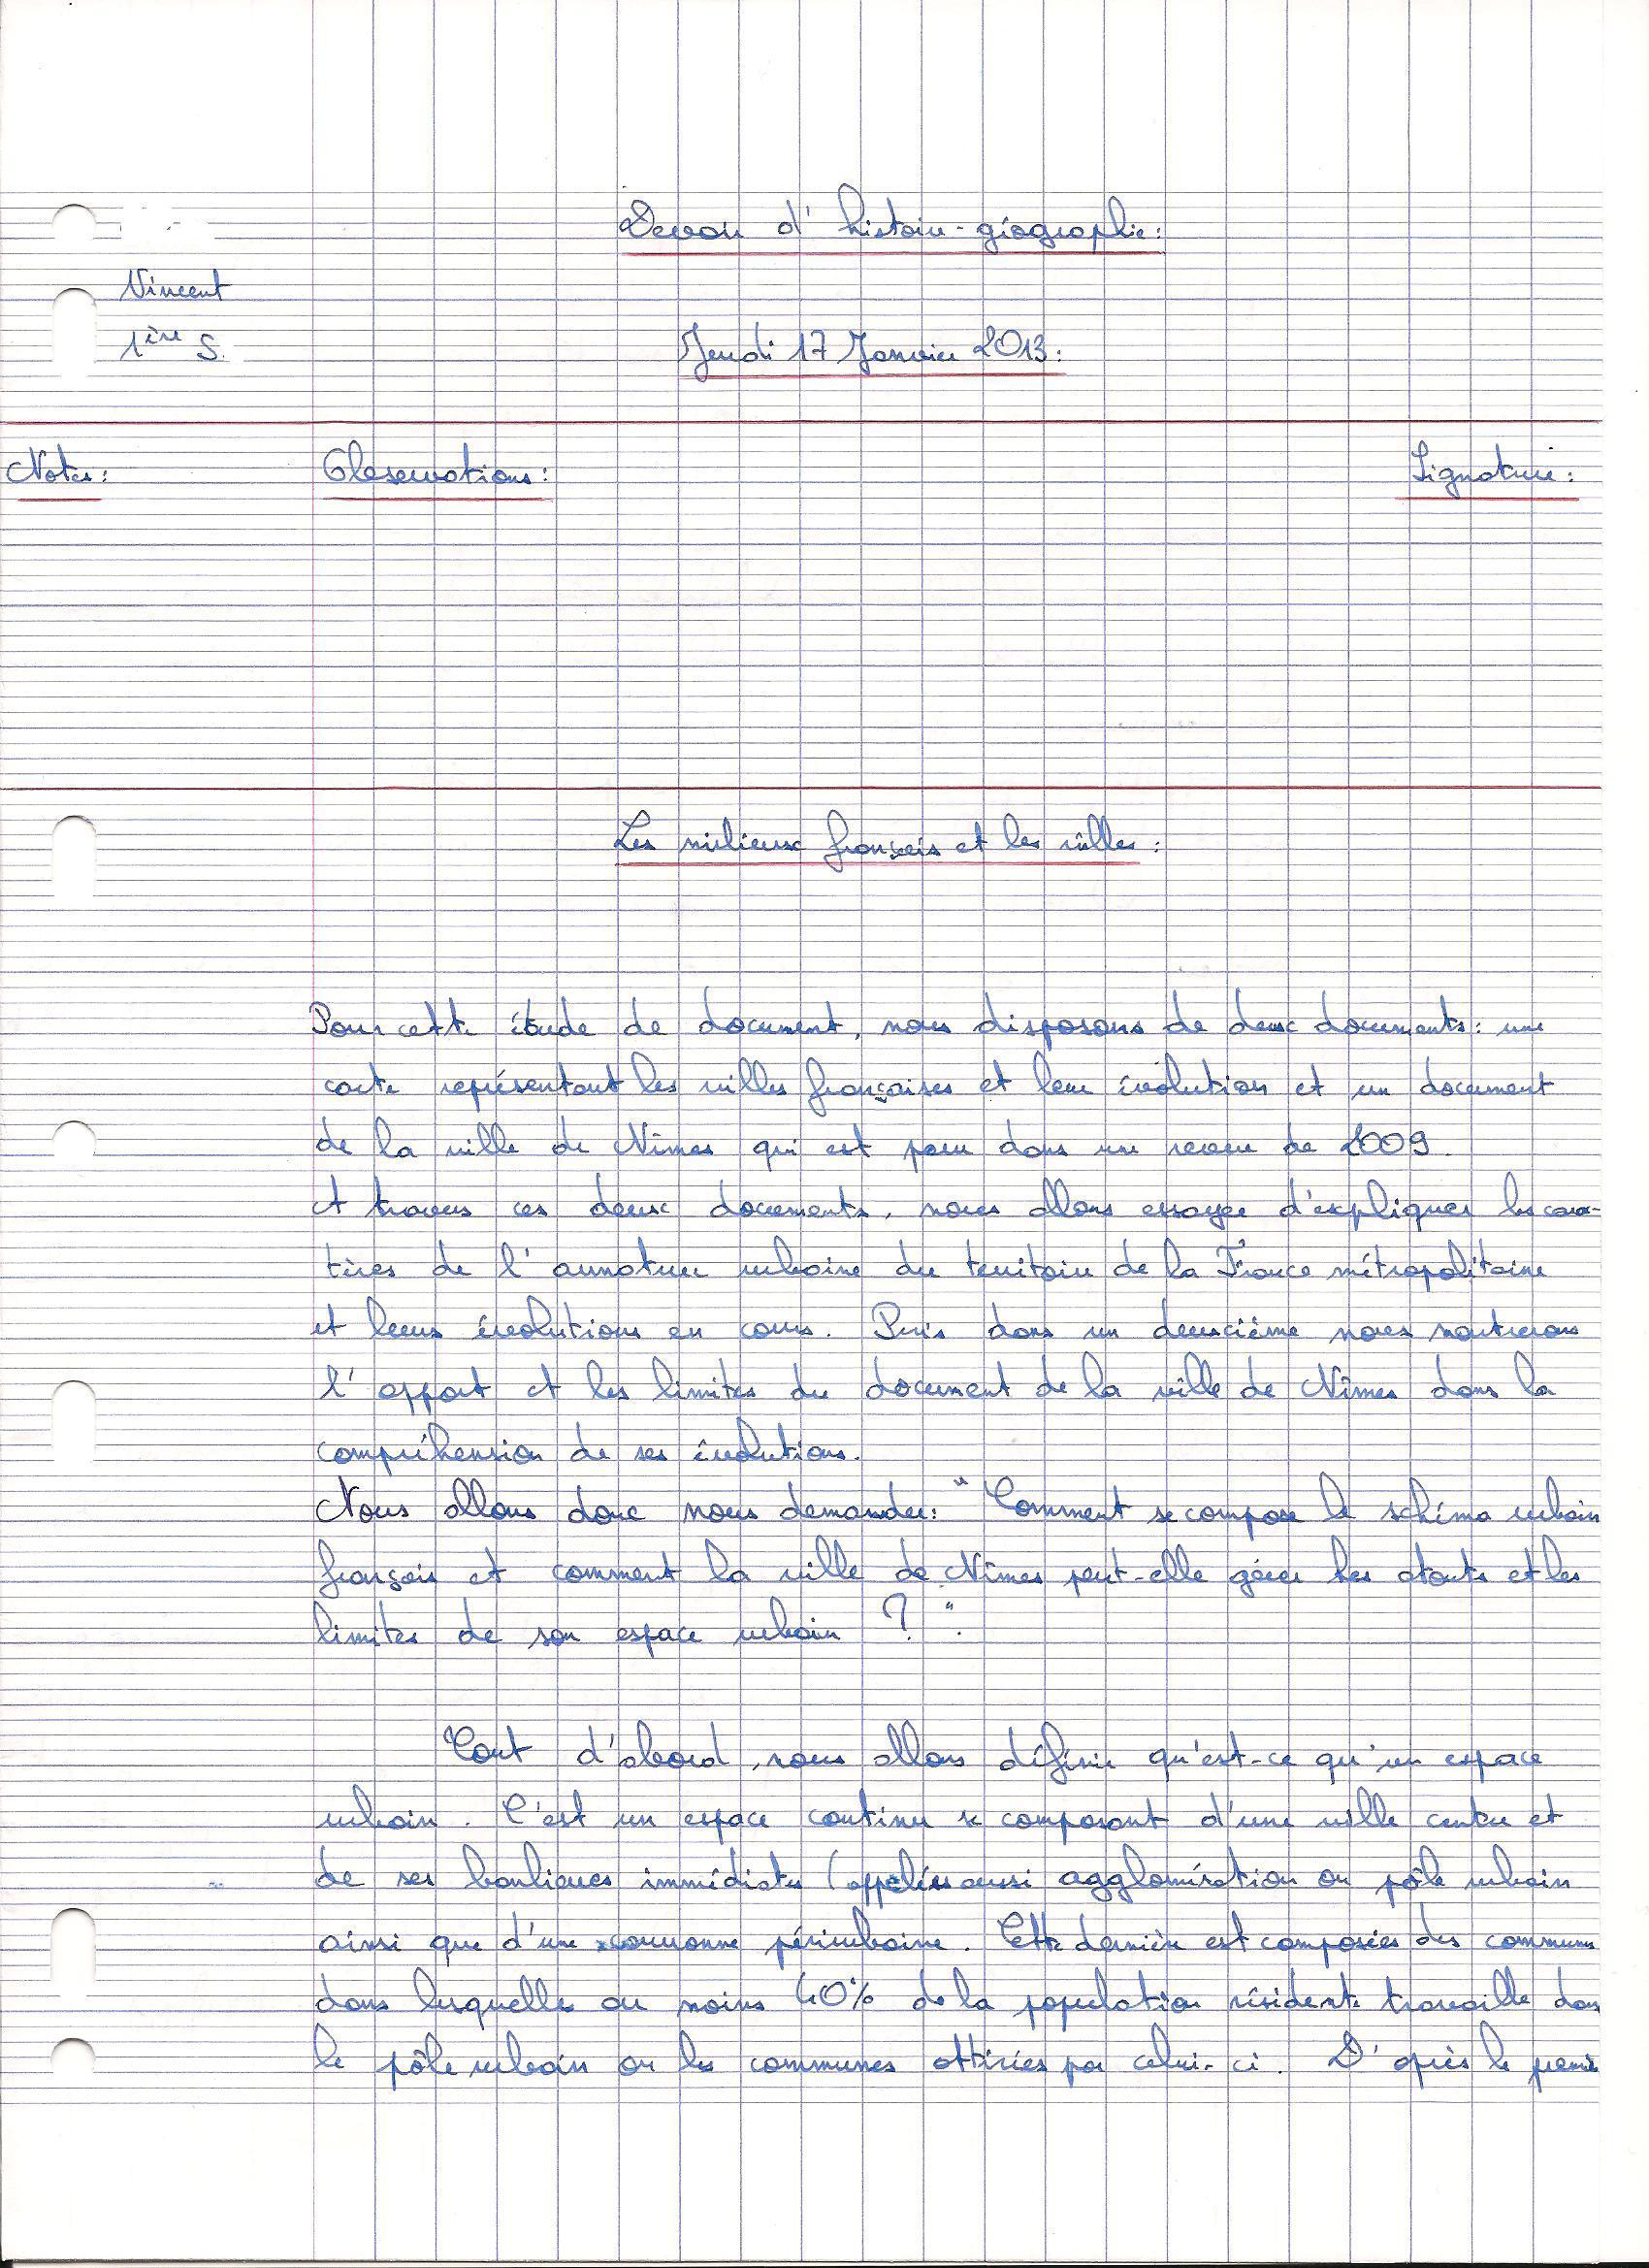 Devoir d'histoire-géographie:
Vincent
1ère S.
Jeudi 17 Janvier 2013:
Notes:
Observations:
Signature:
Les milieux français et les villes:
Pour cette étude de document, nous disposons de deux documents: une
carte représentant les villes françaises et leur évolution et un document
de la ville de Nîmes qui est paru dans une revue de 2009.
A travers ces deux documents, nous allons essayer d'expliquer les carac-
tères de l'armature urbaine du territoire de la France métropolitaine
et leurs évolutions en cours. Puis dans un deuxième nous montrerons
l'apport et les limites du document de la ville de Nîmes dans la
compréhension de ses évolutions.
Nous allons donc nous demander: "Comment se compose le schéma urbain
français et comment la ville de Nîmes peut-elle gérer les atouts et les
limites de son espace urbain ?".
Tout d'abord, nous allons définir qu'est-ce qu'un espace
urbain. C'est un espace continu se composant d'une ville centre et
de ses banlieues immédiates (appelées aussi agglomération ou pôle urbain
ainsi que d'une couronne périurbaine. Cette dernière est composées des communes
dans lesquelles au moins 40% de la population résidente travaille dans
le pôle urbain ou les communes attirées par celui-ci. D'après le premier